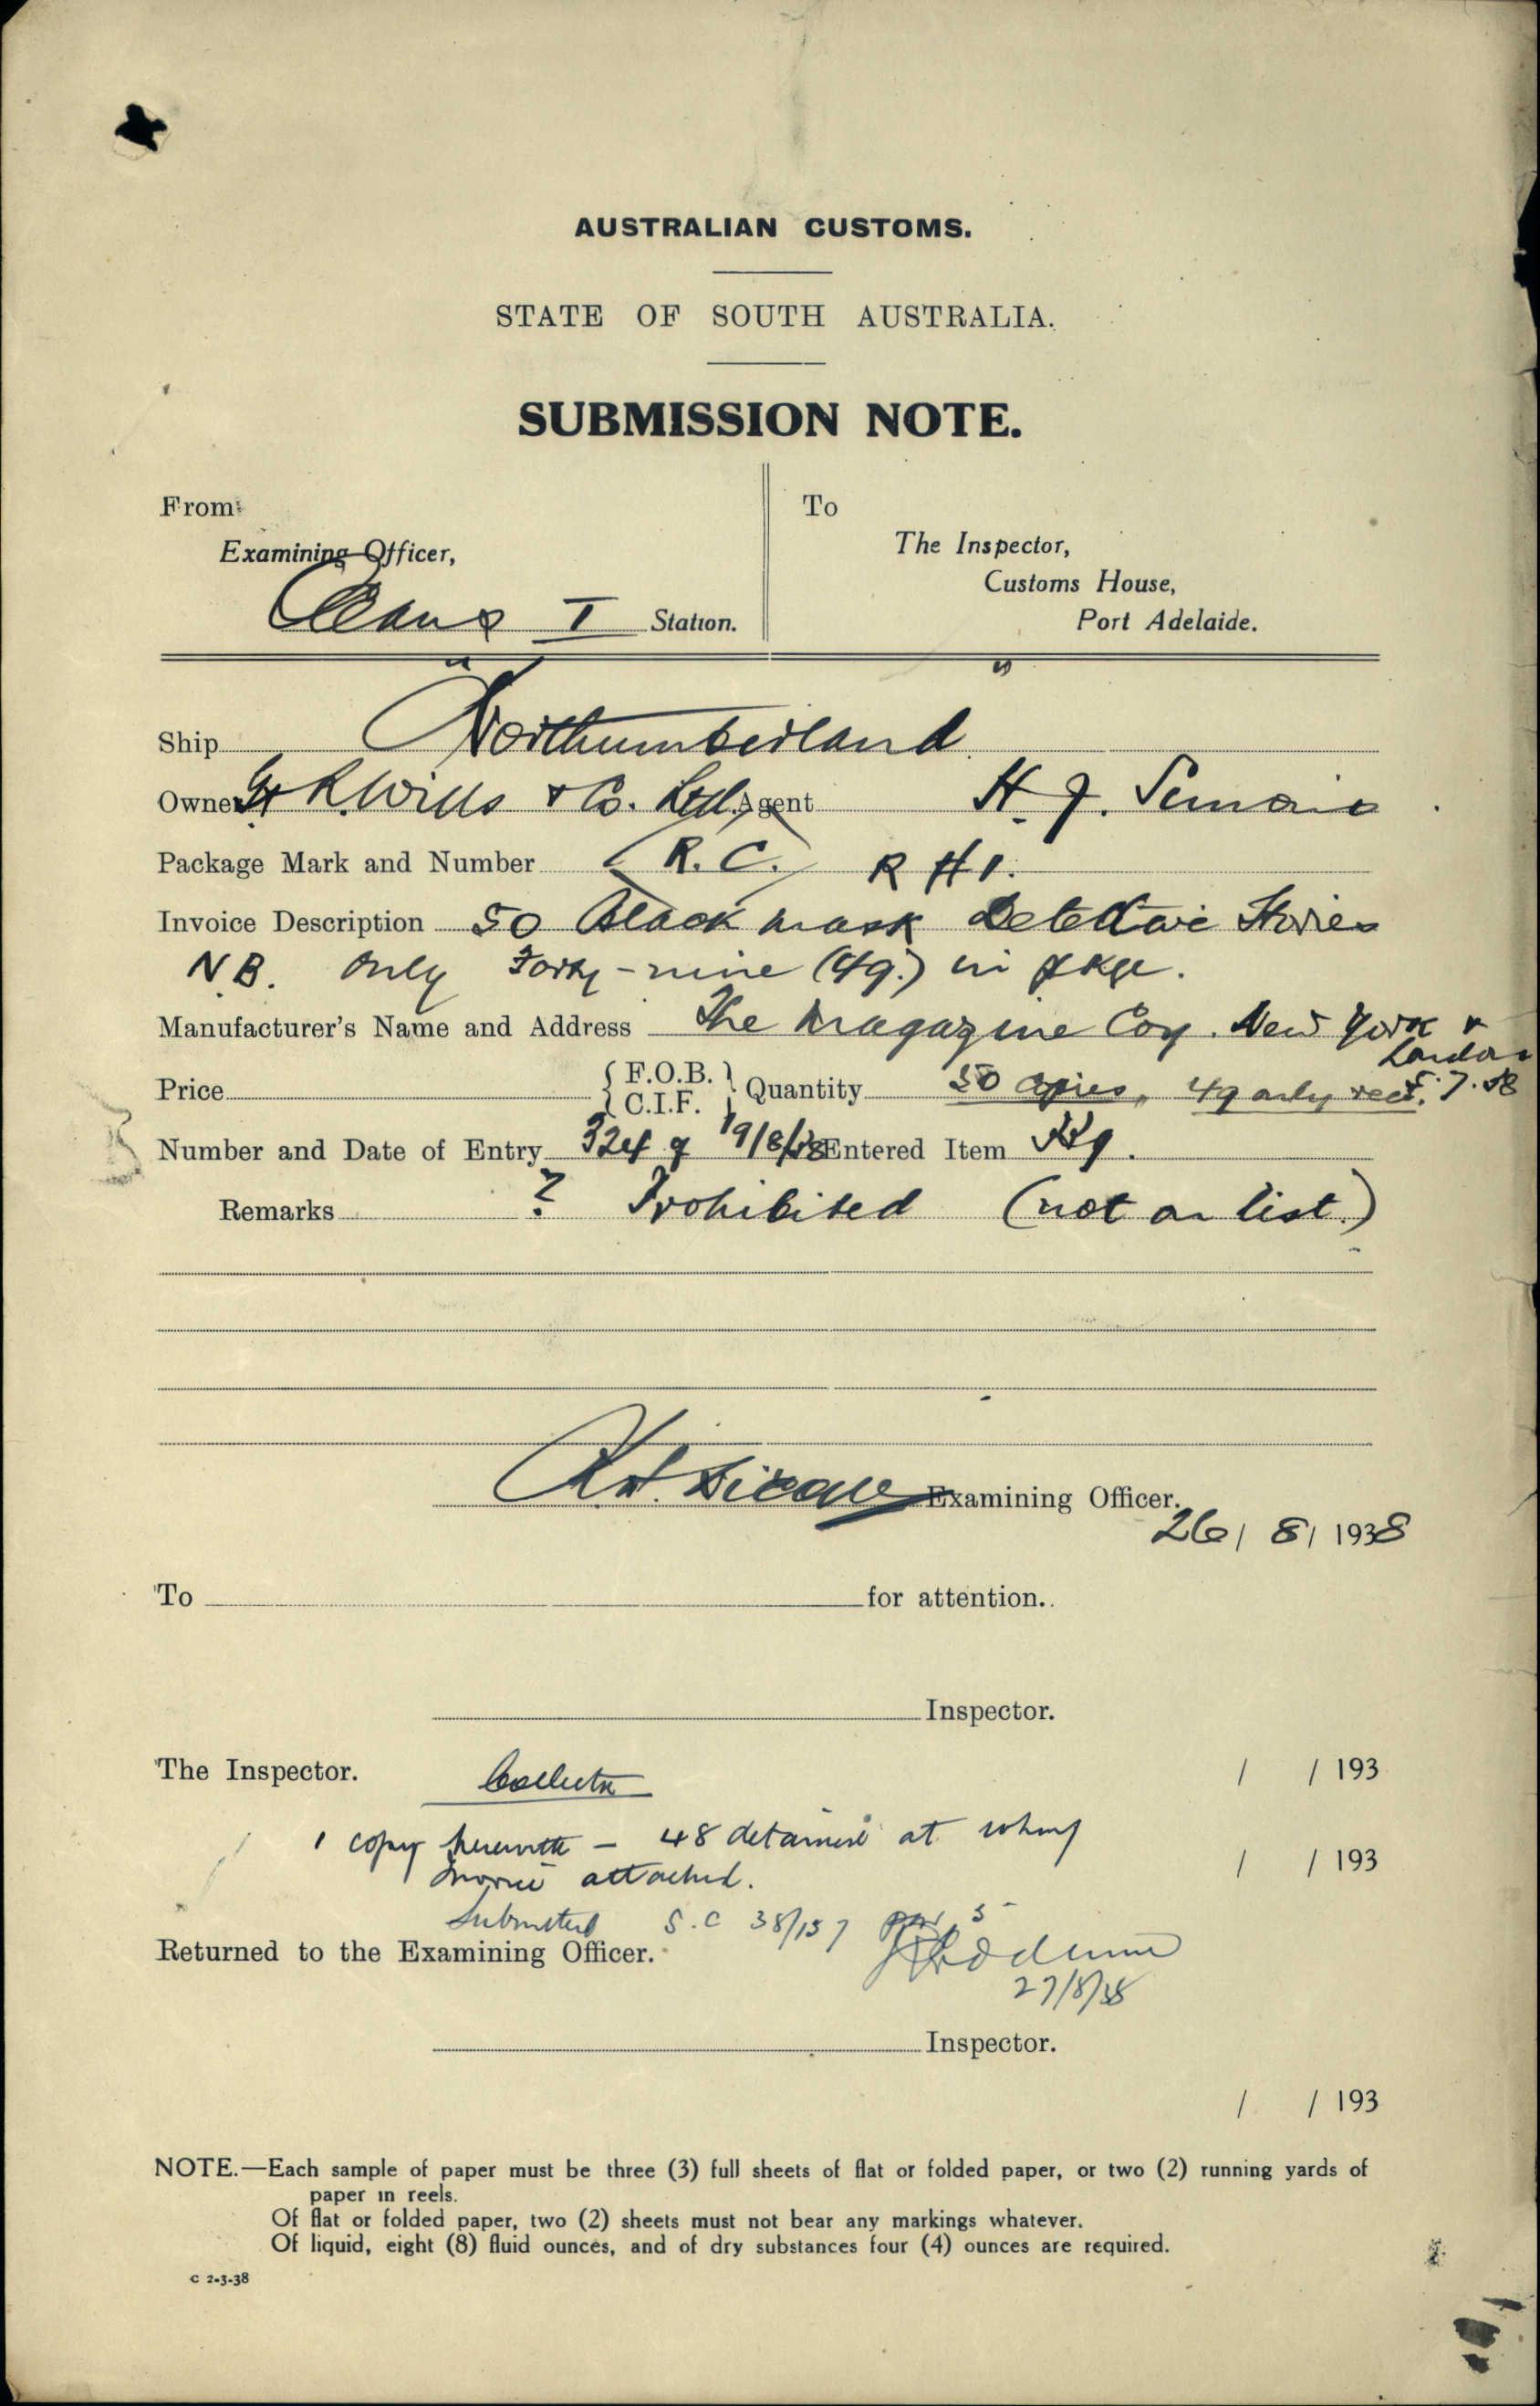 AUSTRALIAN CUSTOMS.
STATE OF SOUTH AUSTRALIA.
SUBMISSION NOTE.
From:
Examining Officer,
I Station.
To
The Inspector,
Customs House,
Port Adelaide.
Ship Northumberland
Owner G & R Wills & Co. Ltd. Agent H. J.
Package Mark and Number R. C. R H 1.
Invoice Description 50 Black Mask Detective Stories
N.B. Only Forty-nine (49.) in pkge.
Manufacturer's Name and Address The Magazine Coy. New York &
London
Price { F.O.B. C.I.F. } Quantity 50 copies, 49 only recd.
Number and Date of Entry 324 of 19/8/38 Entered Item
Remarks ? Prohibited (not on list.)
Examining Officer.
26/ 8/ 1938
To for attention.
Inspector.
The Inspector. Collector / / 193
1 copy herewith – 48 detained at wharf
attached. / / 193
Submitted S.C 38/157
Returned to the Examining Officer.
27/8/38
Inspector.
/ / 193
NOTE.—Each sample of paper must be three (3) full sheets of flat or folded paper, or two (2) running yards of
paper in reels.
Of flat or folded paper, two (2) sheets must not bear any markings whatever.
Of liquid, eight (8) fluid ounces, and of dry substances four (4) ounces are required.
C 2-3-38